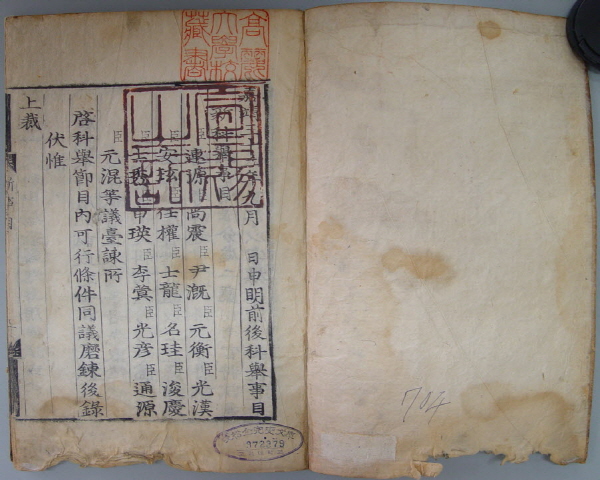 高麗大學校藏書
年九月 日申明前後科舉事目
科舉事目
臣連源臣尚震臣尹漑臣元衡臣光漢
臣安玹臣任權臣士龍臣名珪臣浚慶
臣申瑛臣李蓂臣光彦臣通源
臣元混等議臺諫所
啓科舉節目內可行條件同議磨鍊後錄
伏惟
上裁
794
372379